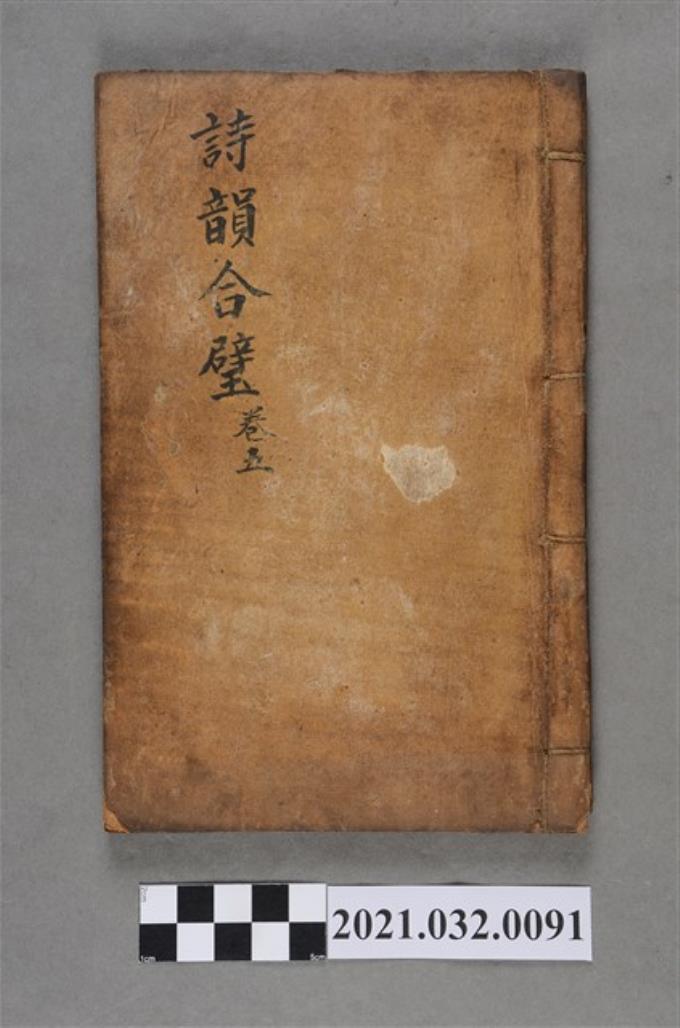 詩韻合璧
卷五
2021.032.0091
2cm
1cm
5cm